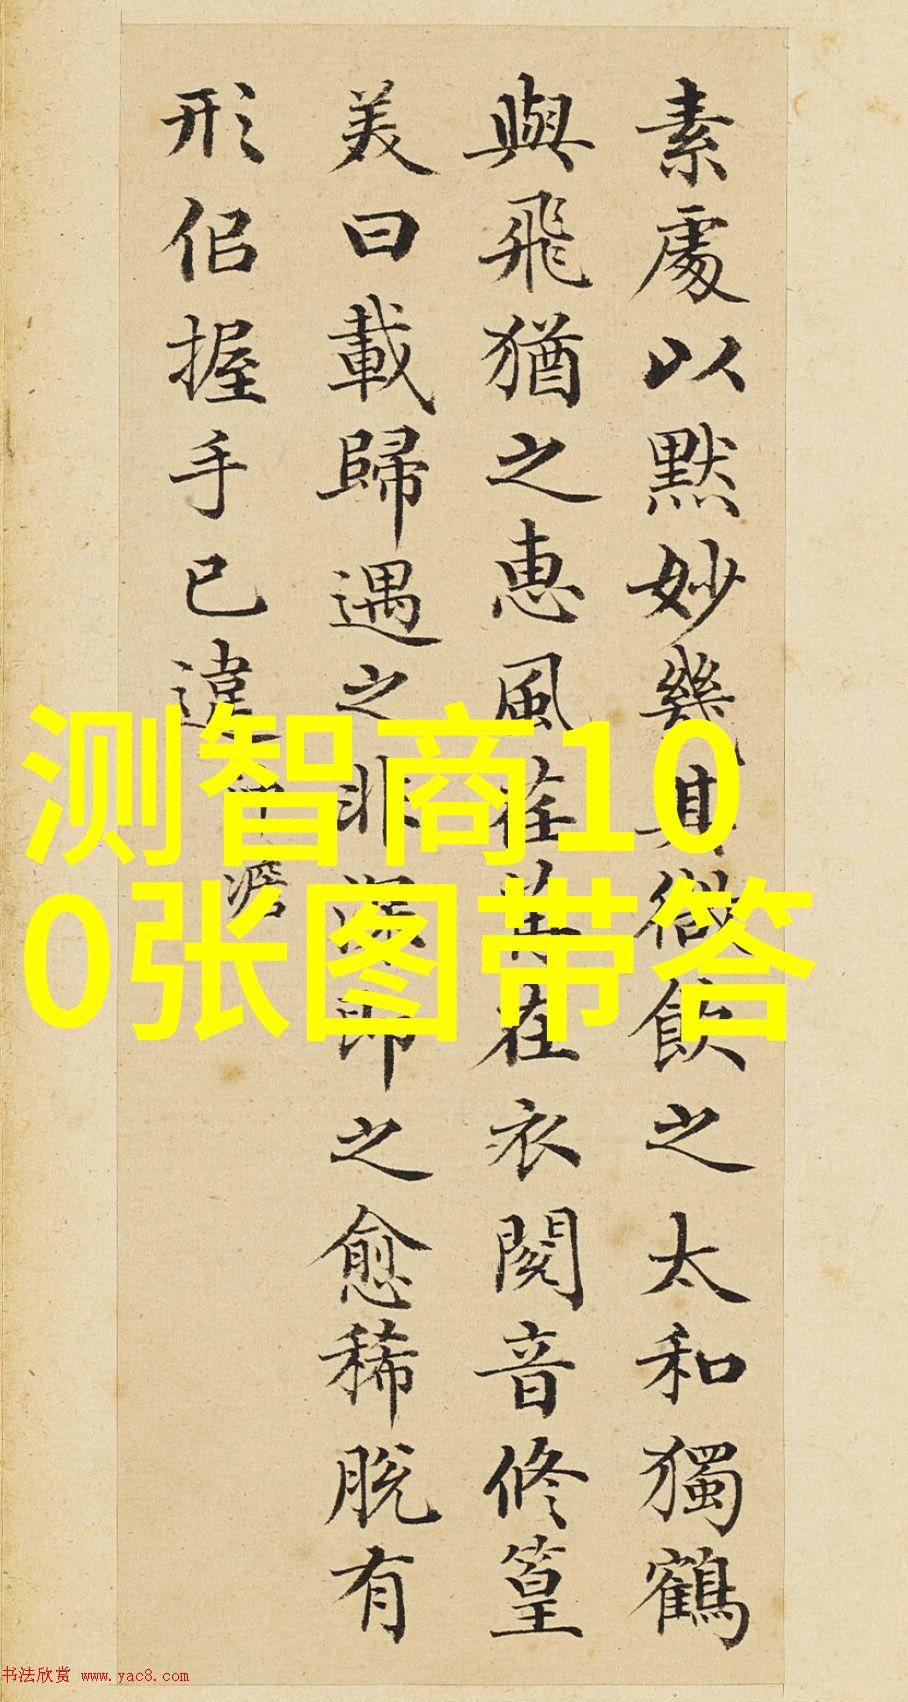 素處以默妙幾其微飲之太和獨鶴
與飛猶之惠風荏苒在衣閱音修篁
美曰載歸遇之非深即之愈稀脫有
形侣握手已違
沖澹
测智商10
0张图带答
书法欣赏 www.yac8.com